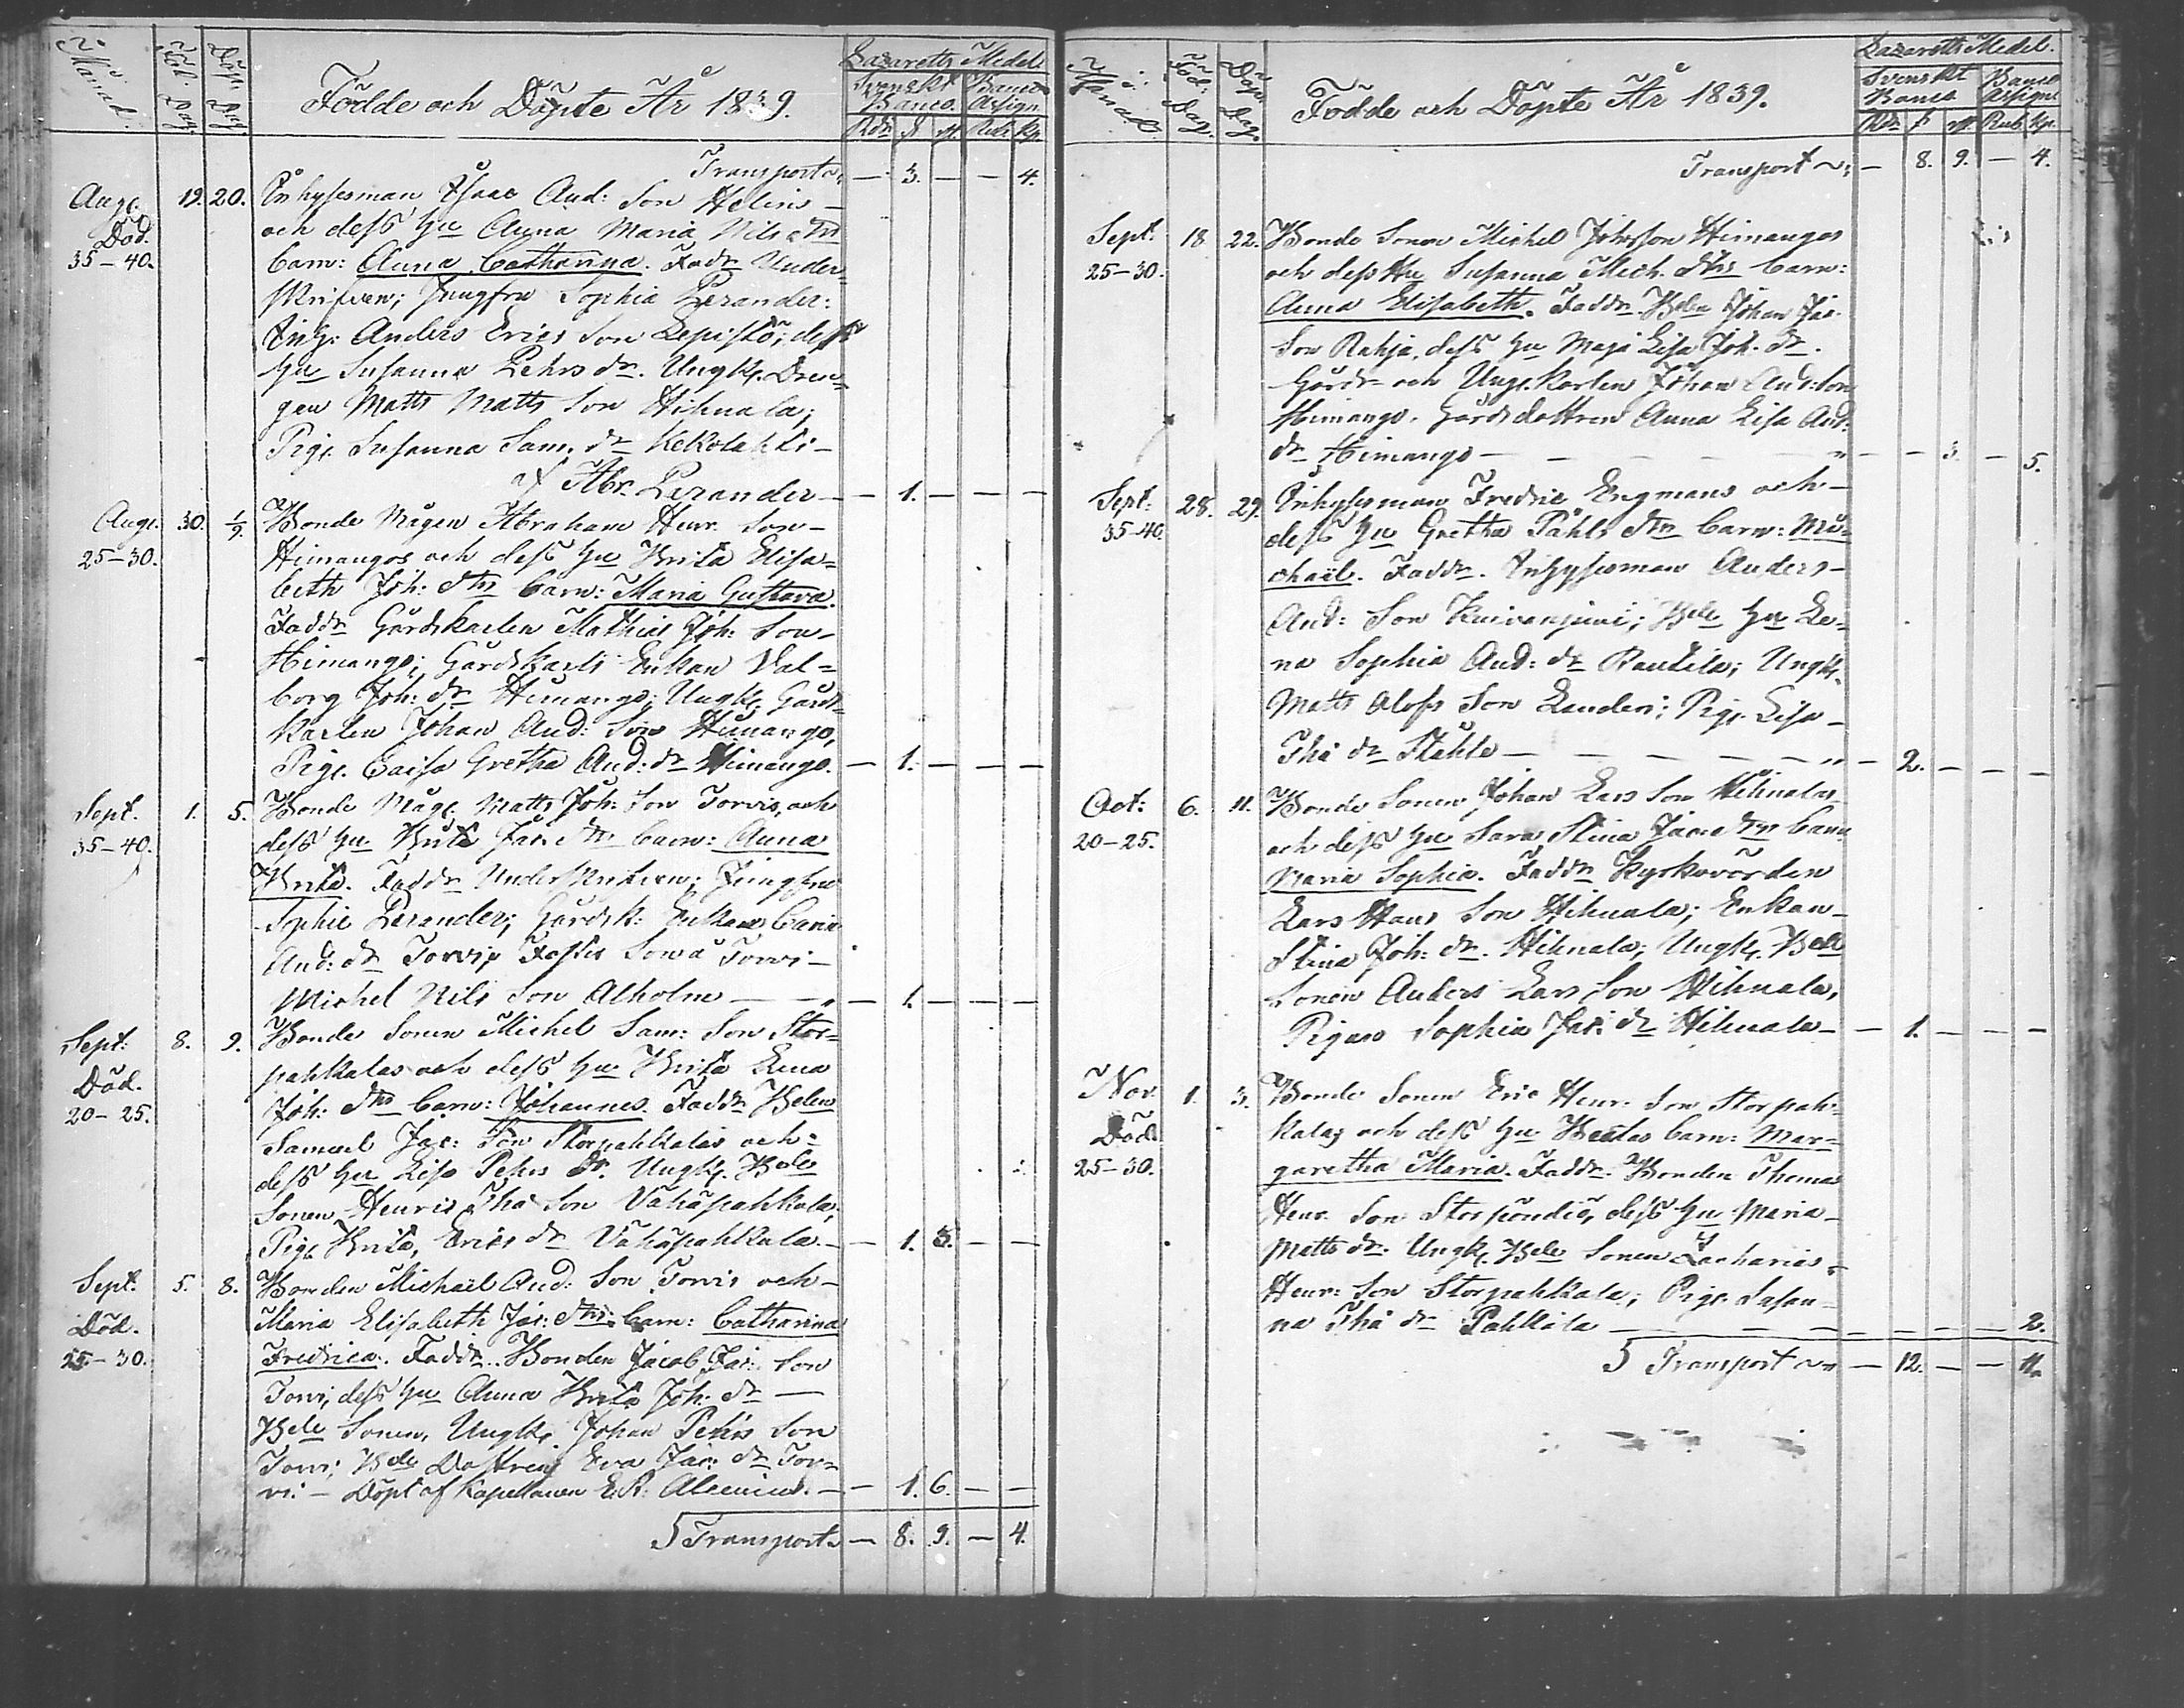 Månad.
Föd. Dag
Döp. Dag
Födde och Döpte År 1839.
Lazaretts Medel
Svenskt Banco.
Banco Assign.
Rdr ß rst. Rub. Kp.
Transport — 3. — — 4.
Aug. 19. 20. Inhysesman Isaac And: Son Helins
Död. och dess Hu Anna Maria Nils dtrs
35–40. barn: Anna Catharina. Faddr Under-
skrifven; Jungfru Sophia Perander;
Inh: Anders Erics Son Lepistö; dess
Hu Susanna Pehrs dr. Ungk. Dren-
gen Matts Matts Son Hihnala;
Pig. Susanna Sam. dr Kekolahti —
af Abr. Perander — — 1. — — —
Aug. 30. 1/9. Bonde Mågen Abraham Henr. Son
25–30. Himangos och dess Hu Brita Elisa-
beth Joh: dtrs barn: Maria Gustava.
Faddr Gårdskarlen Mathias Joh: Son
Himango; Gårdskarls Enkan Val-
borg Joh: dr Himango; Ungk. Gårds-
karlen Johan And: Son Himango,
Pig. Caisa Gretha And: dr Himango. — 1. — — —
Sept. 1. 5. Bonde Måg. Matts Joh: Son Torvis, och
35–40. dess Hu Brita Jac. dtrs barn: Anna
Brita. Faddr Underskrifven; Jungfru
Sophie Perander; Gårdsk: Enkan Carin
And: dr Torvi; Torvi —
Michel Nils Son Alholm — — 1. — — —
Sept: 8. 9. Bonde Sonen Michel Sam: Son Stor-
Död. pahkalas och dess Hu Brita Lena
20–25. Joh: dtrs barn: Johannes. Faddr Bden
Samuel Jac: Son Storpahkalas och
dess Hu Lisa Pehrs dr. Ungk. Bde
Sonen Henric Tho: Son Vähäpahkala;
Pig. Brita, Erics dr Vähäpahkala. — 1. 3. — —
Sept. 5. 8. Bonden Michaël And: Son Torvis och
Död. Maria Elisabeth Jac: dtrs barn: Catharina
25–30. Fredrica. Faddr. Bonden Jacob Jac: Son
Torvi, dess Hu Anna Brita Joh: dr —
Bde Sonen, Ungk. Johan Pehrs Son
Torvi; Bde Dottren Eva Jac: dr Tor-
vi. — Döpt af Kapellanen E.R: Alcenius. — 1. 6. — —
5 Transport — 8. 9. — 4.
Månad.
Föd: Dag.
Döp. Dag.
Födde och Döpte År 1839.
Lazaretts Medel.
Svenskt Banco
Banco Assign.
Rdr ß rst Rub. Kp.
Transport — 8. 9. — 4.
Sept: 18. 22. Bonde Sonen Michel Johsson Himangos
25–30. och dess Hu Susanna Mich. dtrs barn:
Anna Elisabeth. Faddr. Bden Johan Jac.
Son Rahja, dess Hu Maja Lisa Joh. dr.
Gårds och Ungkarlen Johan And: Son
Himango. Gårdsdottren Anna Lisa And:
dr Himango — — — — — 3. — 5.
Sept: 28. 29. Inhysesman Fredric Engmans och
35–40. dess Hu Gretha Påhls dtrs barn: Mi-
chaël. Faddr. Inhysesman Anders
And: Son Kuivanjuni; Bde Hu Le-
na Sophia And: dr Rautila; Ungk.
Matts Olofs Son Landen; Pig. Lisa
Tho: dr Ståhle — — — — 2. — — —
Oct: 6. 11. Bonde Sonen Johan Lars Son Hihnalas
20–25. och dess Hu Sara Stina Jac: dtrs barn
Maria Sophia. Faddr Kyrkovärden
Lars Hans Son Hihnala; Enkan
Stina Joh: dr. Hihnala; Ungk. Bde
Sonen Anders Lars Son Hihnala,
Pigan Sophia Jac: dr Hihnala — — 1. — — —
Nov. 1. 3. Bonde Sonen Eric Henr. Son Storpah-
Död kalas och dess Hu Beatas barn: Mar-
25–30. garetha Maria. Faddr. Bonden Thomas
Henr. Son Storpöndiö, dess Hu Maria
Matts dr. Ungk. Bde Sonen Zacharias
Henr: Son Storpahkala; Pig. Susan-
na Tho: dr Pahkala — — — — — 2.
5 Transport — 12. — — 11.